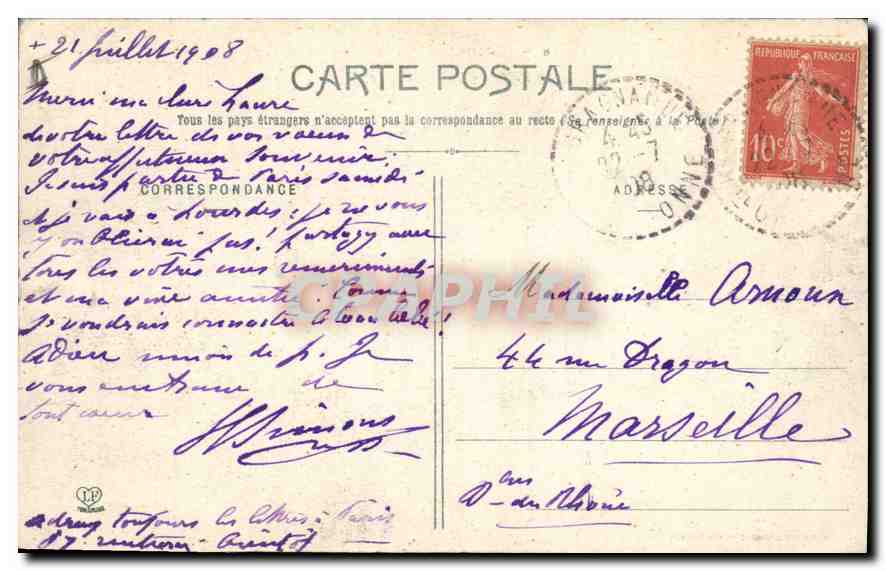 + 21 Juillet 1908
CARTE POSTALE
Tous les pays étrangers n'acceptent pas la correspondance au recto (Se renseigner à la Poste)
Merci ma chère Laure
de votre lettre de vos voeux &
votre affectueux souvenir.
Je suis partie de Paris samedi
CORRESPONDANCE
ADRESSE
et je vais à Lourdes : je ne vous
y oublierai pas! partagez avec
tous les vôtres mes remerciements
et ma vive amitié.
Je voudrais connaître
Adieu union de p. Je
vous embrasse de
tout coeur
HSimons
adressez toujours les lettres à Paris
j'y rentrerai bientôt
Mademoiselle Arnoux
44 rue Dragon
Marseille
Bches du Rhône
REPUBLIQUE FRANÇAISE
10c
POSTES
4 45
22 -7
08
ONNE
LF
CPAPHIL